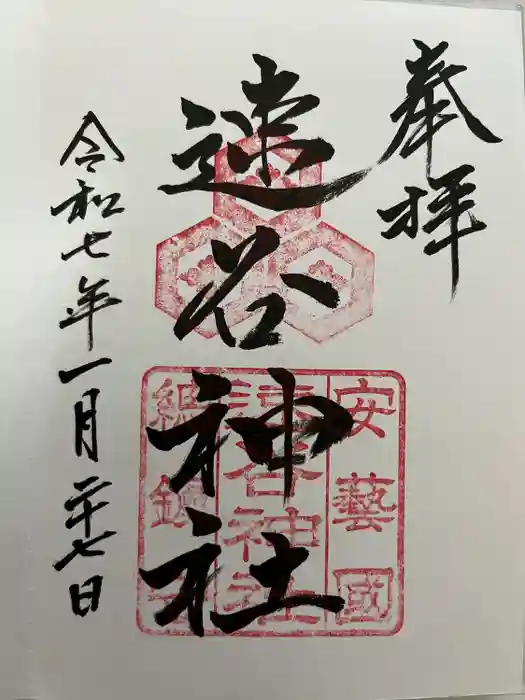 奉拝
速谷神社
令和七年一月二十七日
安藝國
速谷神社
総鎮守